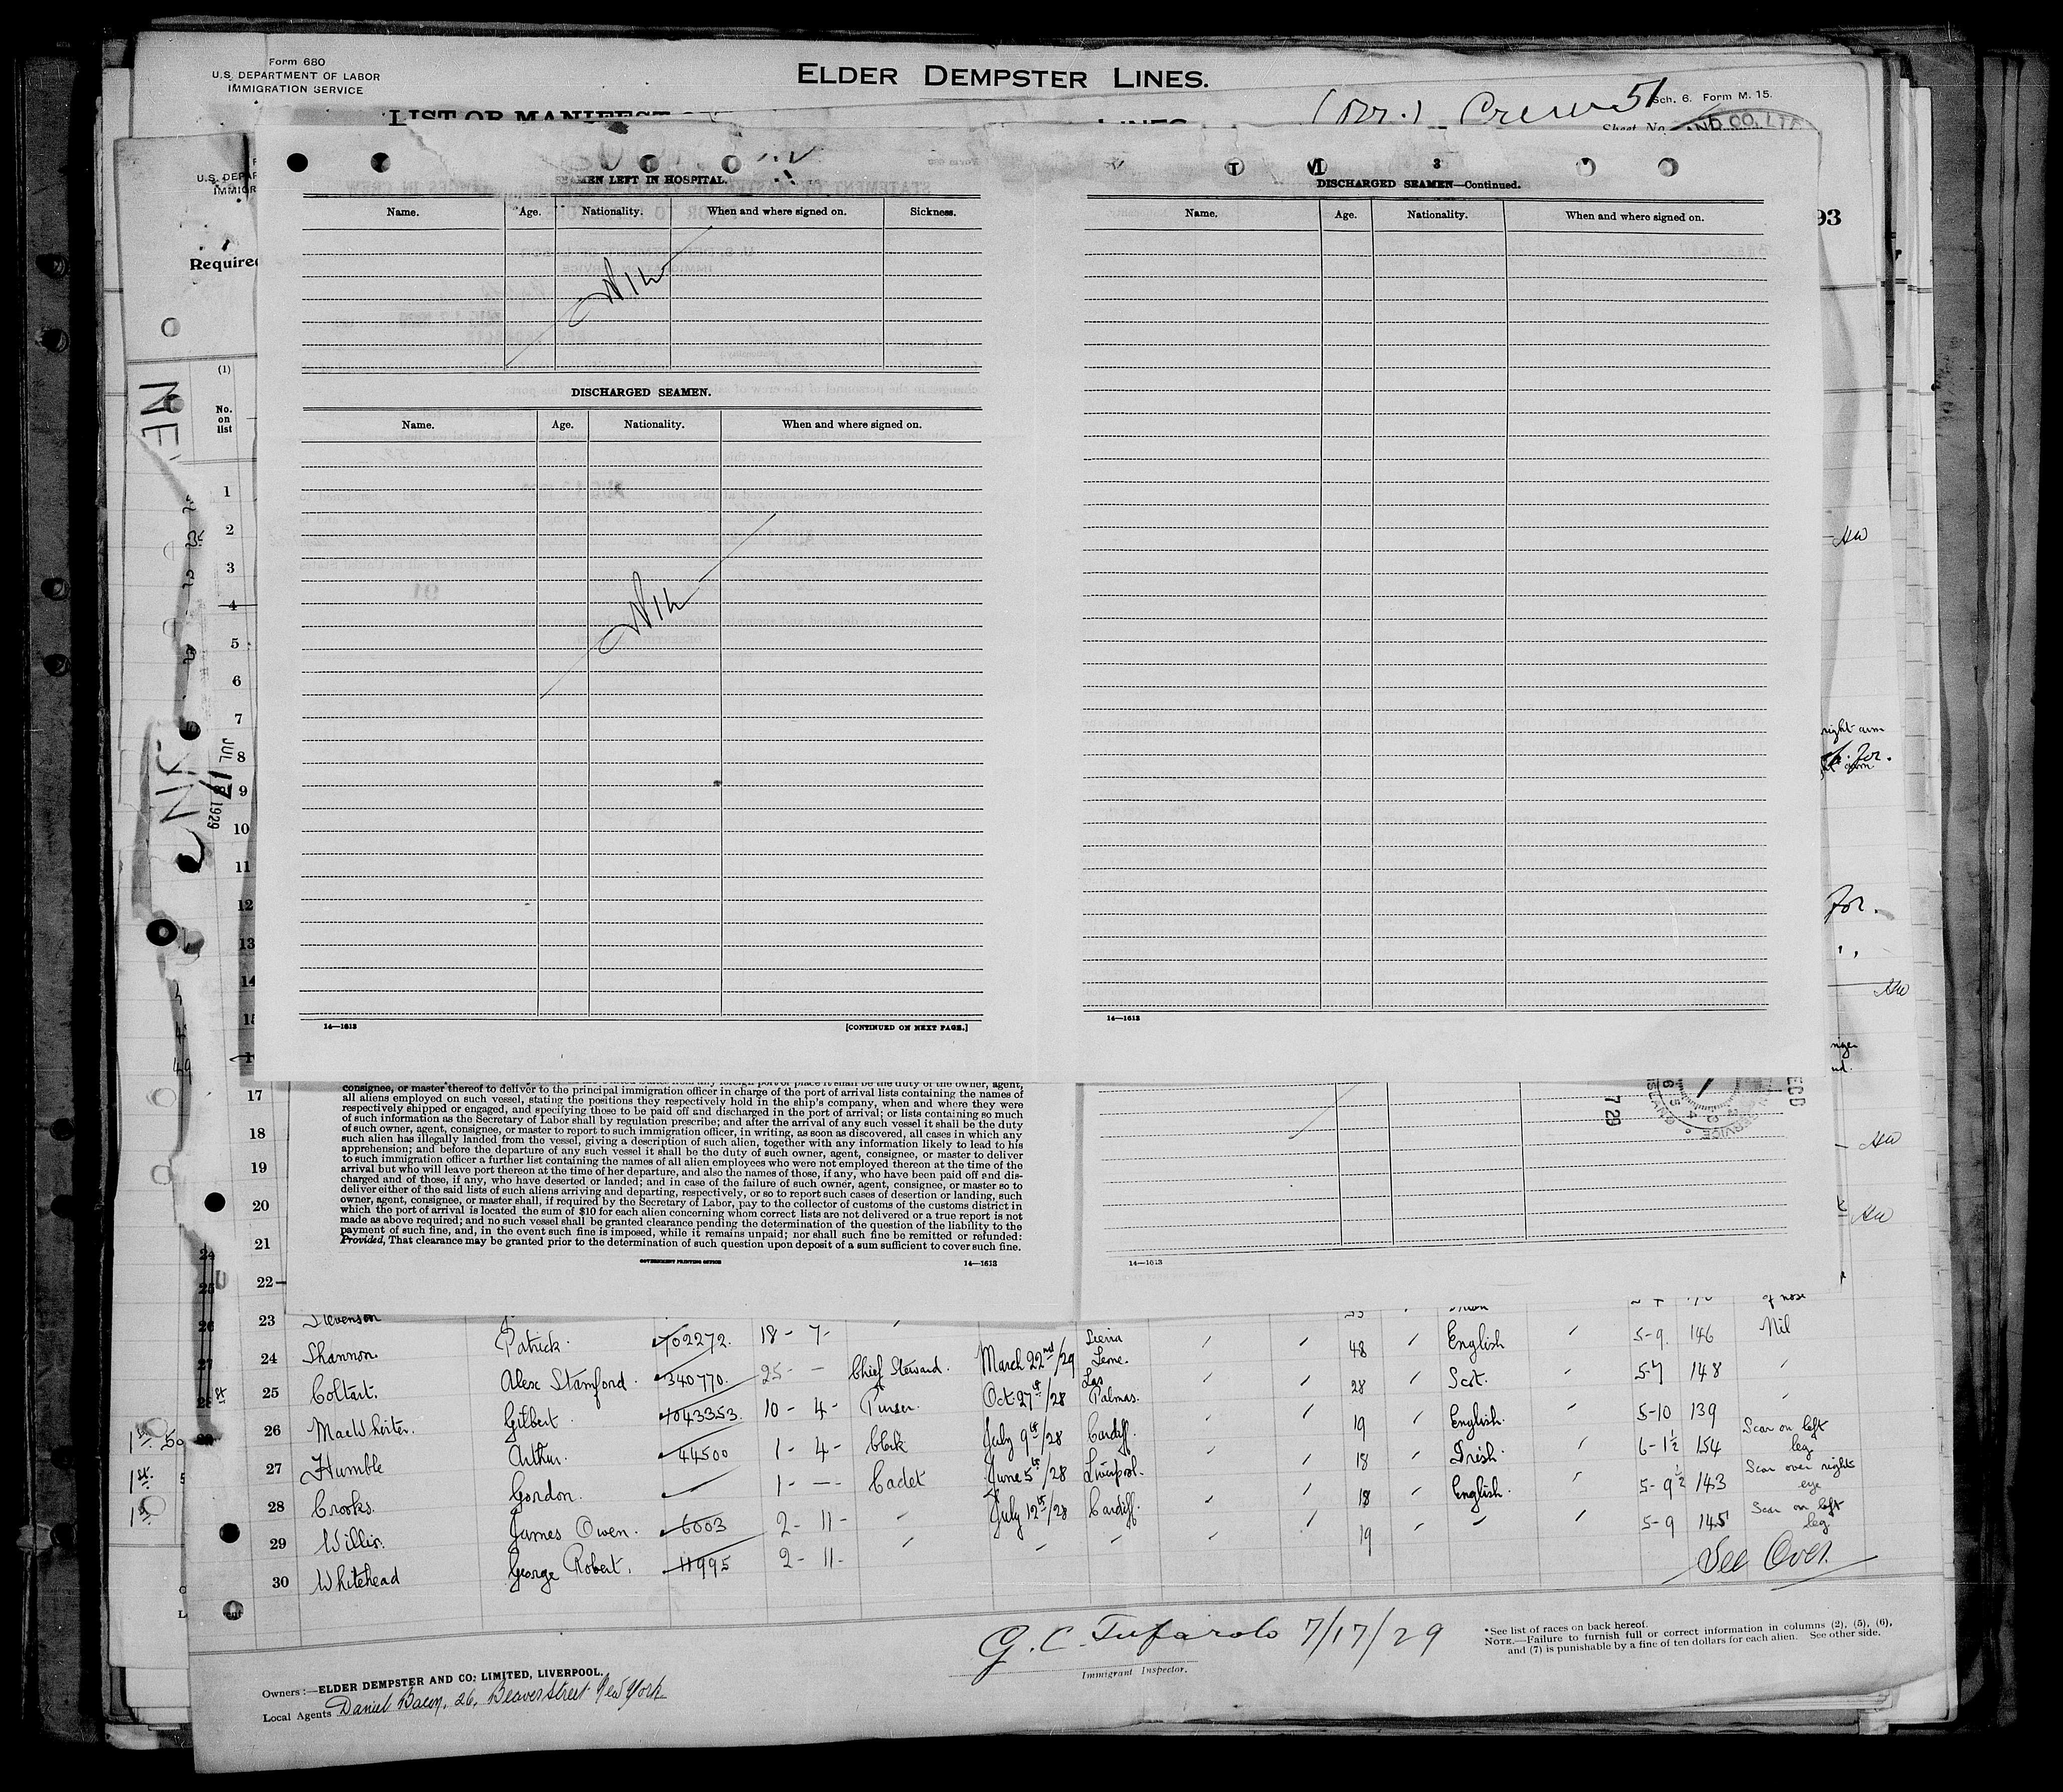 Form 680
U.S. DEPARTMENT OF LABOR
IMMIGRATION SERVICE
ELDER DEMPSTER LINES.
Crew 51
Sch. 6. Form M. 15.
LIST OR MANIFEST
Sheet No.
AND CO. LTD
U.S. DEPAR
IMMIGR
Required
93
SEAMEN LEFT IN HOSPITAL.
Name. Age. Nationality. When and where signed on. Sickness.
Nil
DISCHARGED SEAMEN.
Name. Age. Nationality. When and where signed on.
Nil
14—1613
[CONTINUED ON NEXT PAGE.]
DISCHARGED SEAMEN—Continued.
Name. Age. Nationality. When and where signed on.
14—1613
(1)
No. on list
1
2
3
4
5
6
7
8
9
10
11
12
13
14
17
18
19
20
21
22
JUL 17 1929
right arm
for.
consignee, or master thereof to deliver to the principal immigration officer in charge of the port of arrival lists containing the names of
all aliens employed on such vessel, stating the positions they respectively hold in the ship's company, when and where they were
respectively shipped or engaged, and specifying those to be paid off and discharged in the port of arrival; or lists containing so much
of such information as the Secretary of Labor shall by regulation prescribe; and after the arrival of any such vessel it shall be the duty
of such owner, agent, consignee, or master to report to such immigration officer, in writing, as soon as discovered, all cases in which any
such alien has illegally landed from the vessel, giving a description of such alien, together with any information likely to lead to his
apprehension; and before the departure of any such vessel it shall be the duty of such owner, agent, consignee, or master to deliver
to such immigration officer a further list containing the names of all alien employees who were not employed thereon at the time of the
arrival but who will leave port thereon at the time of her departure, and also the names of those, if any, who have been paid off and dis-
charged and of those, if any, who have deserted or landed; and in case of the failure of such owner, agent, consignee, or master so to
deliver either of the said lists of such aliens arriving and departing, respectively, or so to report such cases of desertion or landing, such
owner, agent, consignee, or master shall, if required by the Secretary of Labor, pay to the collector of customs of the customs district in
which the port of arrival is located the sum of $10 for each alien concerning whom correct lists are not delivered or a true report is not
made as above required; and no such vessel shall be granted clearance pending the determination of the question of the liability to the
payment of such fine, and, in the event such fine is imposed, while it remains unpaid; nor shall such fine be remitted or refunded:
Provided, That clearance may be granted prior to the determination of such question upon deposit of a sum sufficient to cover such fine.
GOVERNMENT PRINTING OFFICE
14—1613
14—1613
23 Stevenson of nose
24 Shannon. Patrick. 702272. 18 - 7 - " 48 English 5-9. 146 Nil
25 Coltart. Alex Stamford. 340770. 25 - — Chief Steward. March 22nd/29 Sierra Leone. 28 Scot. 5-7 148 "
26 MacWhirter. Gilbert. 1043353. 10 - 4 - Purser. Oct 27th/28 Las Palmas. 19 English. 5-10 139 "
27 Humble Arthur. 44500 1 - 4 - Clerk July 9th/28 Cardiff. 18 Irish. 6-1½ 154 Scar on left leg
28 Crooks. Gordon. 1 - — Cadet June 5th/28 Liverpool. 18 English. 5-9½ 143 Scar over right eye
29 Willis. James Owen. 6003 2 - 11 - " July 12th/28 Cardiff. 19 " 5-9 145 Scar on left leg
30 Whitehead George Robert. 11995 2 - 11 - " " "
See Over.
G. C. Tufarolo 7/17/29
Immigrant Inspector.
*See list of races on back hereof.
NOTE.—Failure to furnish full or correct information in columns (2), (5), (6),
and (7) is punishable by a fine of ten dollars for each alien. See other side.
Owners:—ELDER DEMPSTER AND CO: LIMITED, LIVERPOOL.
Local Agents Daniel Bacon, 26, Beaver Street New York